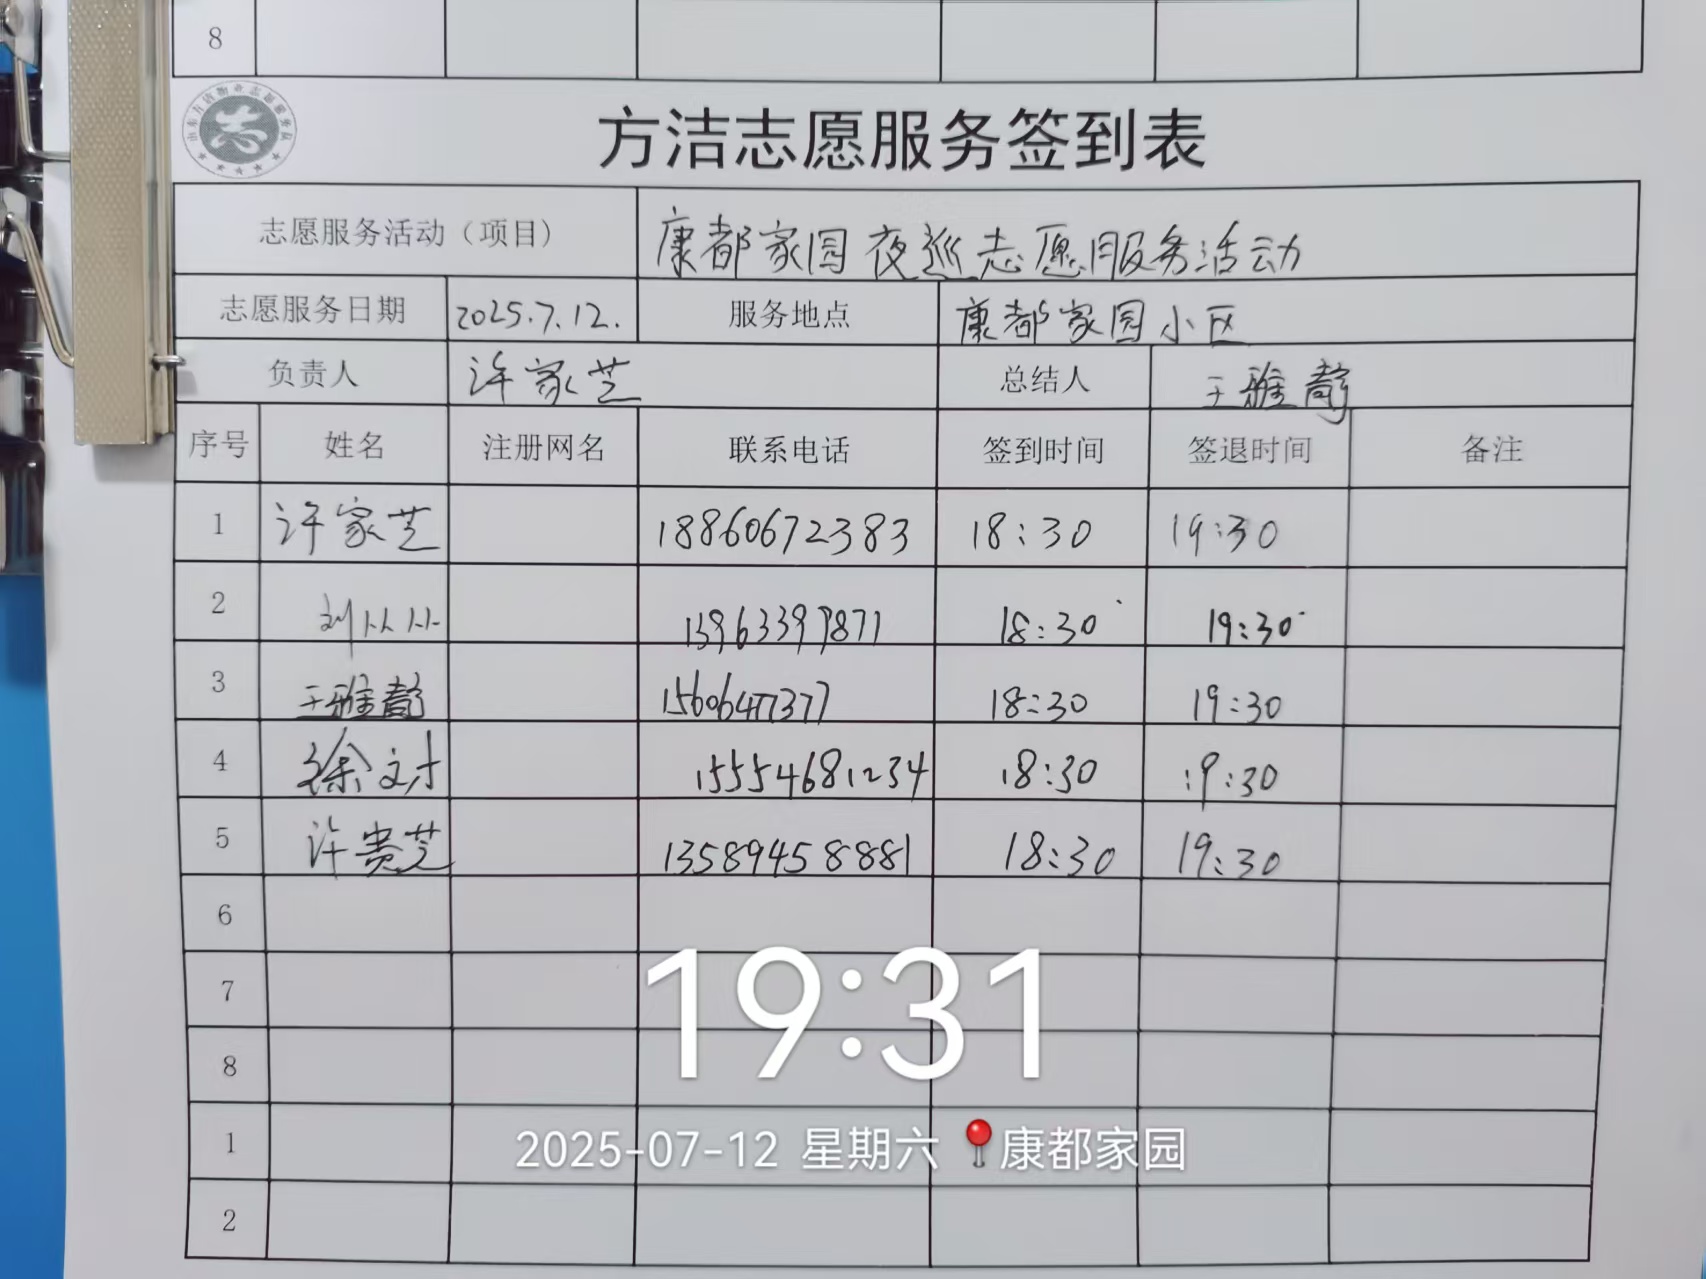 8
方洁志愿服务签到表
志愿服务活动（项目） 康都家园夜巡志愿服务活动
志愿服务日期 2025.7.12. 服务地点 康都家园小区
负责人 许家芝 总结人 王雅静
序号 姓名 注册网名 联系电话 签到时间 签退时间 备注
1 许家芝 18860672383 18:30 19:30
2 刘 13963399871 18:30 19:30
3 王雅静 18:30 19:30
4 徐文才 15554681234 18:30 19:30
5 许贵芝 13589458881 18:30 19:30
6
7
8
1
2
19:31
2025-07-12 星期六 康都家园